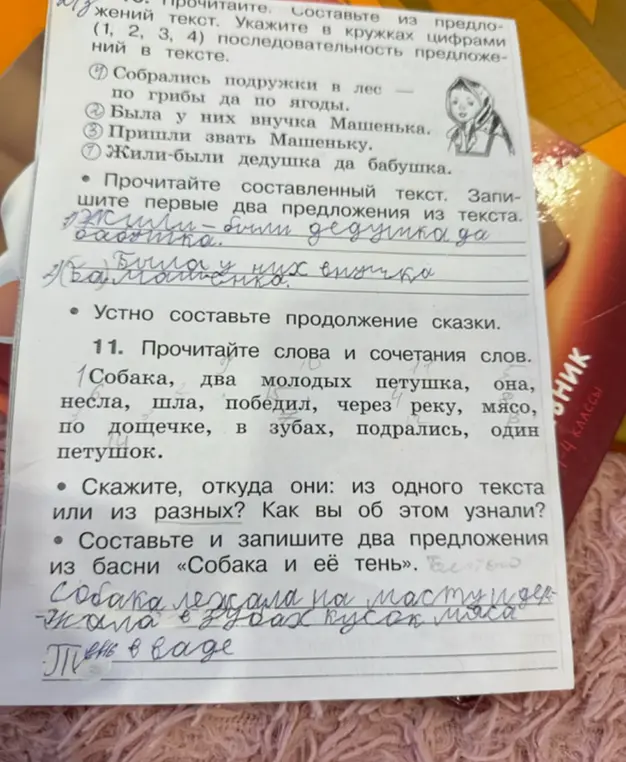 Прочитайте. Составьте из предло-
жений текст. Укажите в кружках цифрами
(1, 2, 3, 4) последовательность предложе-
ний в тексте.
④ Собрались подружки в лес —
по грибы да по ягоды.
② Была у них внучка Машенька.
③ Пришли звать Машеньку.
① Жили-были дедушка да бабушка.
• Прочитайте составленный текст. Запи-
шите первые два предложения из текста.
1) Жили-были дедушка да
бабушка.
2) Была у них внучка
машенка.
• Устно составьте продолжение сказки.
11. Прочитайте слова и сочетания слов.
Собака, два молодых петушка, она,
несла, шла, победил, через реку, мясо,
по дощечке, в зубах, подрались, один
петушок.
• Скажите, откуда они: из одного текста
или из разных? Как вы об этом узнали?
• Составьте и запишите два предложения
из басни «Собака и её тень».
Собака лежала на масту и дер-
жала в зубах кусок мяса
Тень в ваде
НИК
1-4 КЛАССЫ